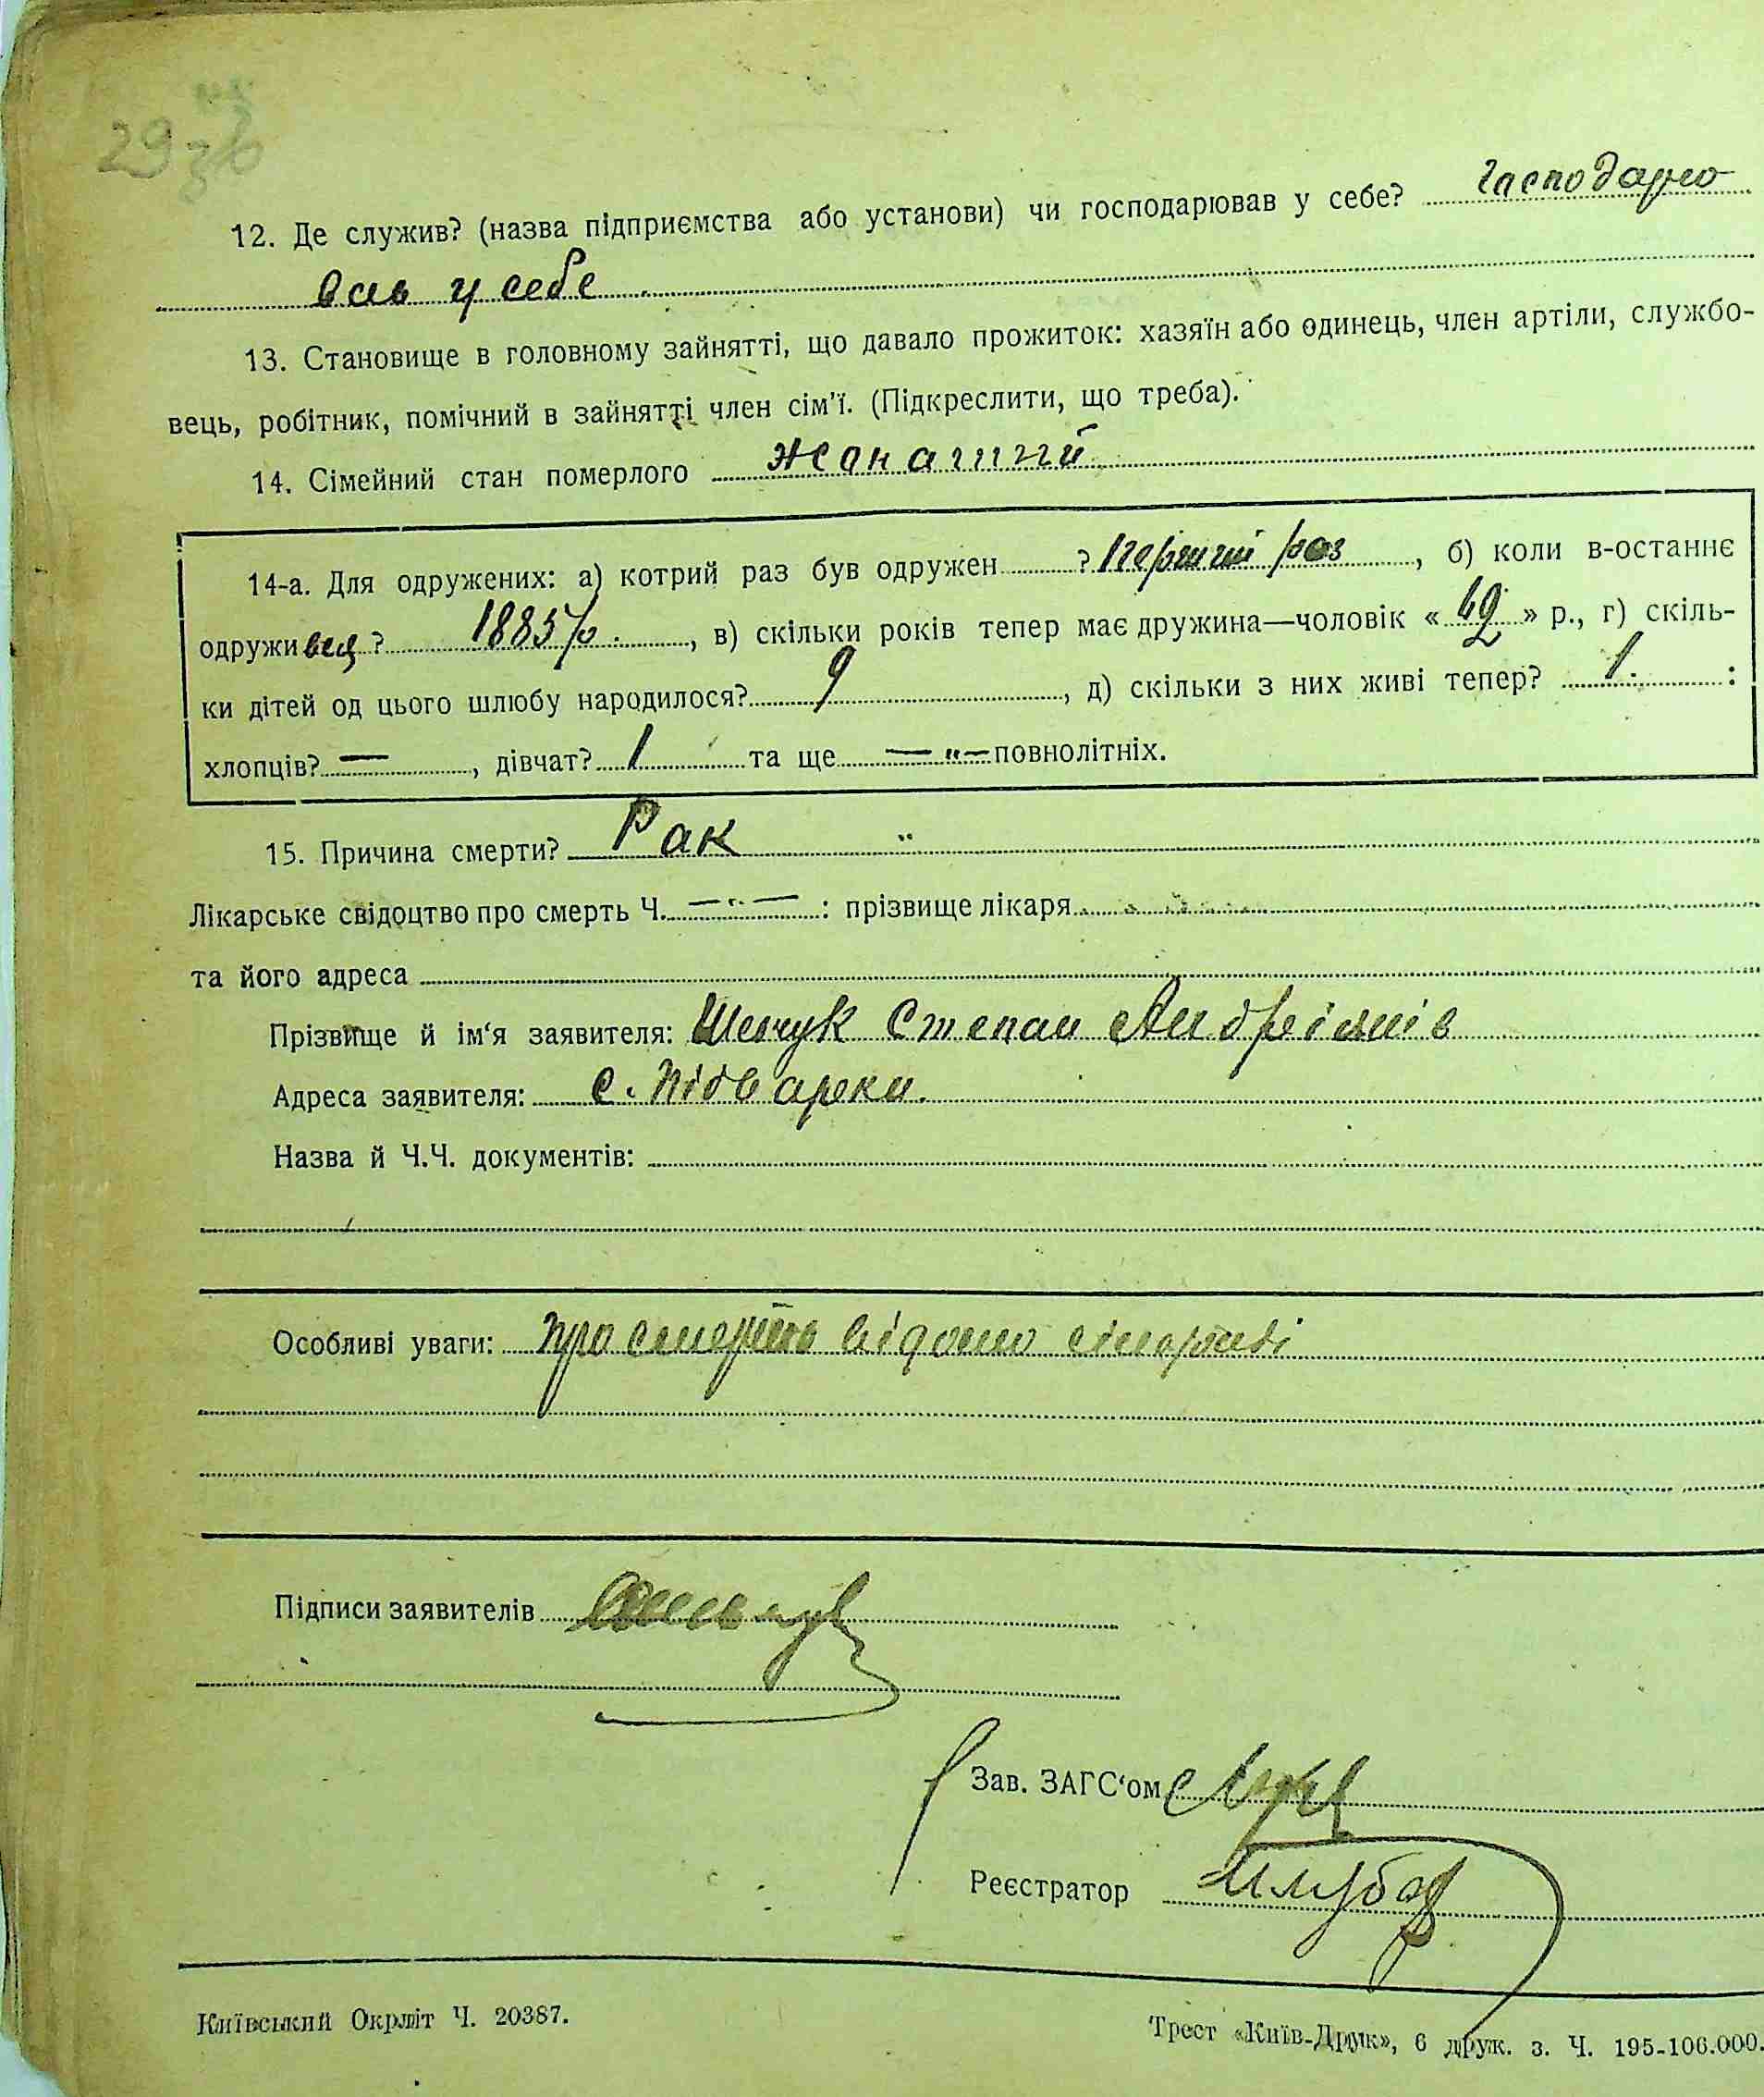 29 36
12. Де служив? (назва підприємства або установи) чи господарював у себе? господарю
вав у себе
13. Становище в головному зайнятті, що давало прожиток: хазяїн або одинець, член артіли, службо-
вець, робітник, помічний в зайнятті член сім'ї. (Підкреслити, що треба).
14. Сімейний стан померлого жонатий
14-а. Для одружених: а) котрий раз був одружен ? перший раз, б) коли в-останнє
одруживсь? 1885 р., в) скільки років тепер має дружина—чоловік « » р., г) скіль-
ки дітей од цього шлюбу народилося? 9, д) скільки з них живі тепер? 1. :
хлопців? —, дівчат? 1 та ще — „ — повнолітніх.
15. Причина смерти? Рак
Лікарське свідоцтво про смерть Ч. — „ — : прізвище лікаря
та його адреса
Прізвище й ім'я заявителя: Шевчук Степан Андріянів
Адреса заявителя: с. Підварки.
Назва й Ч.Ч. документів:
Особливі уваги: про смерть відомо сільраді
Підписи заявителів
Зав. ЗАГС'ом
Реєстратор
Київський Окрліт Ч. 20387.
Трест «Київ-Друк», 6 друк. з. Ч. 195-106.000.